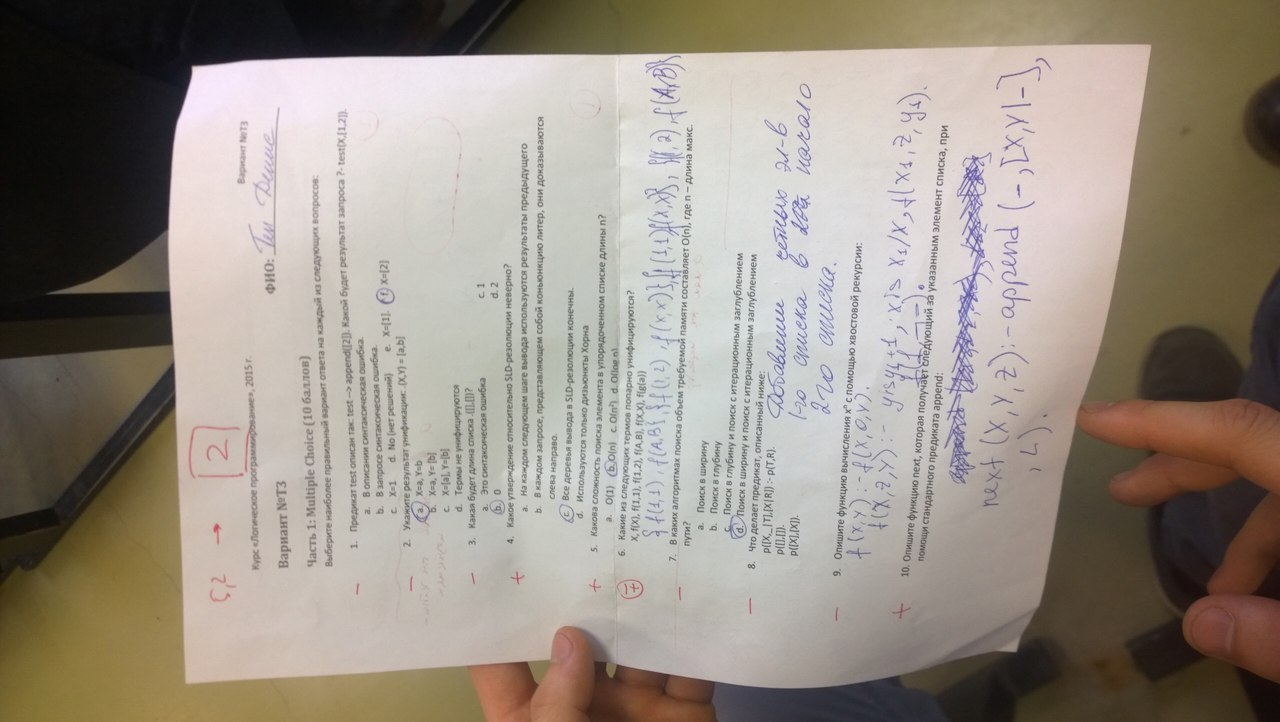 5,2 → 2
Курс «Логическое программирование», 2015 г.
Вариант №Т3
Вариант №Т3
ФИО: Тен Денис
Часть 1: Multiple Choice (10 баллов)
Выберите наиболее правильный вариант ответа на каждый из следующих вопросов:
− 1. Предикат test описан так: test --> append([2]). Какой будет результат запроса ?- test(X,[1,2]).
a. В описании синтаксическая ошибка.
b. В запросе синтаксическая ошибка.
c. X=1 d. No (нет решений) e. X=[1]. f. X=[2]
− 2. Укажите результат унификации: .(X,Y) = [a,b]
a. X=a, Y=b
b. X=a, Y= [b]
c. X=[a], Y=[b]
d. Термы не унифицируются
− 3. Какая будет длина списка .([],[])?
a. Это синтаксическая ошибка c. 1
b. 0 d. 2
+ 4. Какое утверждение относительно SLD-резолюции неверно?
a. На каждом следующем шаге вывода используются результаты предыдущего
b. В каждом запросе, представляющем собой конъюнкцию литер, они доказываются
слева направо.
c. Все деревья вывода в SLD-резолюции конечны.
d. Используются только дизьюнкты Хорна
+ 5. Какова сложность поиска элемента в упорядоченном списке длины n?
a. O(1) b. O(n) c. O(n²) d. O(log n)
6. Какие из следующих термов попарно унифицируются?
X, f(X), f(1,1), f(1,2), f(A,B), f(X,X), f(g(a))
{f(1,1), f(A,B)}, {f(1,2), f(X,X)}, {f(1,1) f(X,X)}, {f(1,2), f(A,B)}
− 7. В каких алгоритмах поиска объем требуемой памяти составляет O(n), где n – длина макс.
пути?
a. Поиск в ширину
b. Поиск в глубину
c. Поиск в глубину и поиск с итерационным заглублением
d. Поиск в ширину и поиск с итерационным заглублением
− 8. Что делает предикат, описанный ниже:
p([X,_|T],[X|R]) :- p(T,R).
p([],[]).
p([X],[X]).
Добавление четных эл-в
1-го списка в начало
2го списка.
− 9. Опишите функцию вычисления xⁿ с помощью хвостовой рекурсии:
f(x,y):-f(x,0,y).
f(x,z,y):- y is y1+1, x is x1/x, f(x1, z, y1).
+ 10. Опишите функцию next, которая получает следующий за указанным элемент списка, при
помощи стандартного предиката append:
next (X,Y,Z):-append (_,[X,Y|_],
, L).